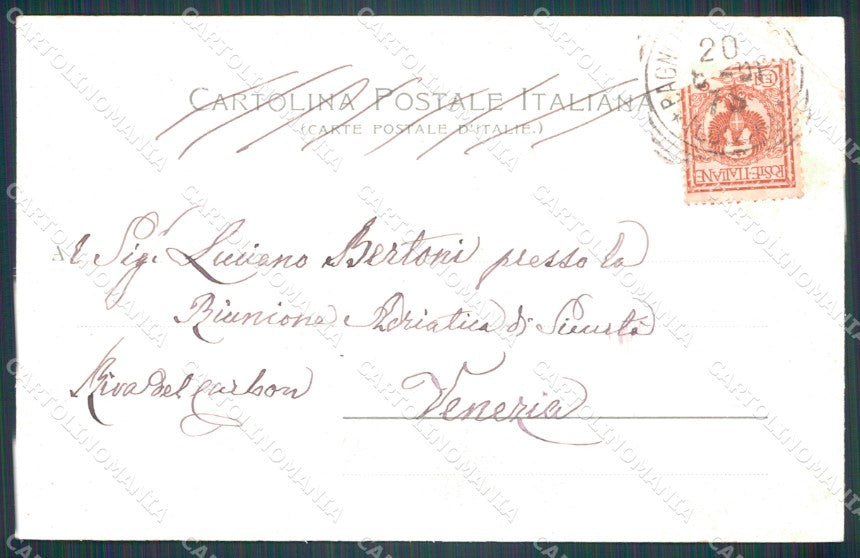 CARTOLINA POSTALE ITALIANA
(CARTE POSTALE D'ITALIE.)
20
POSTE·ITALIANE
Al Sigr Luciano Bertoni presso la
Riunione Adriatica di Sicurtà
Riva del carbon
Venezia
CARTOLINOMANIA